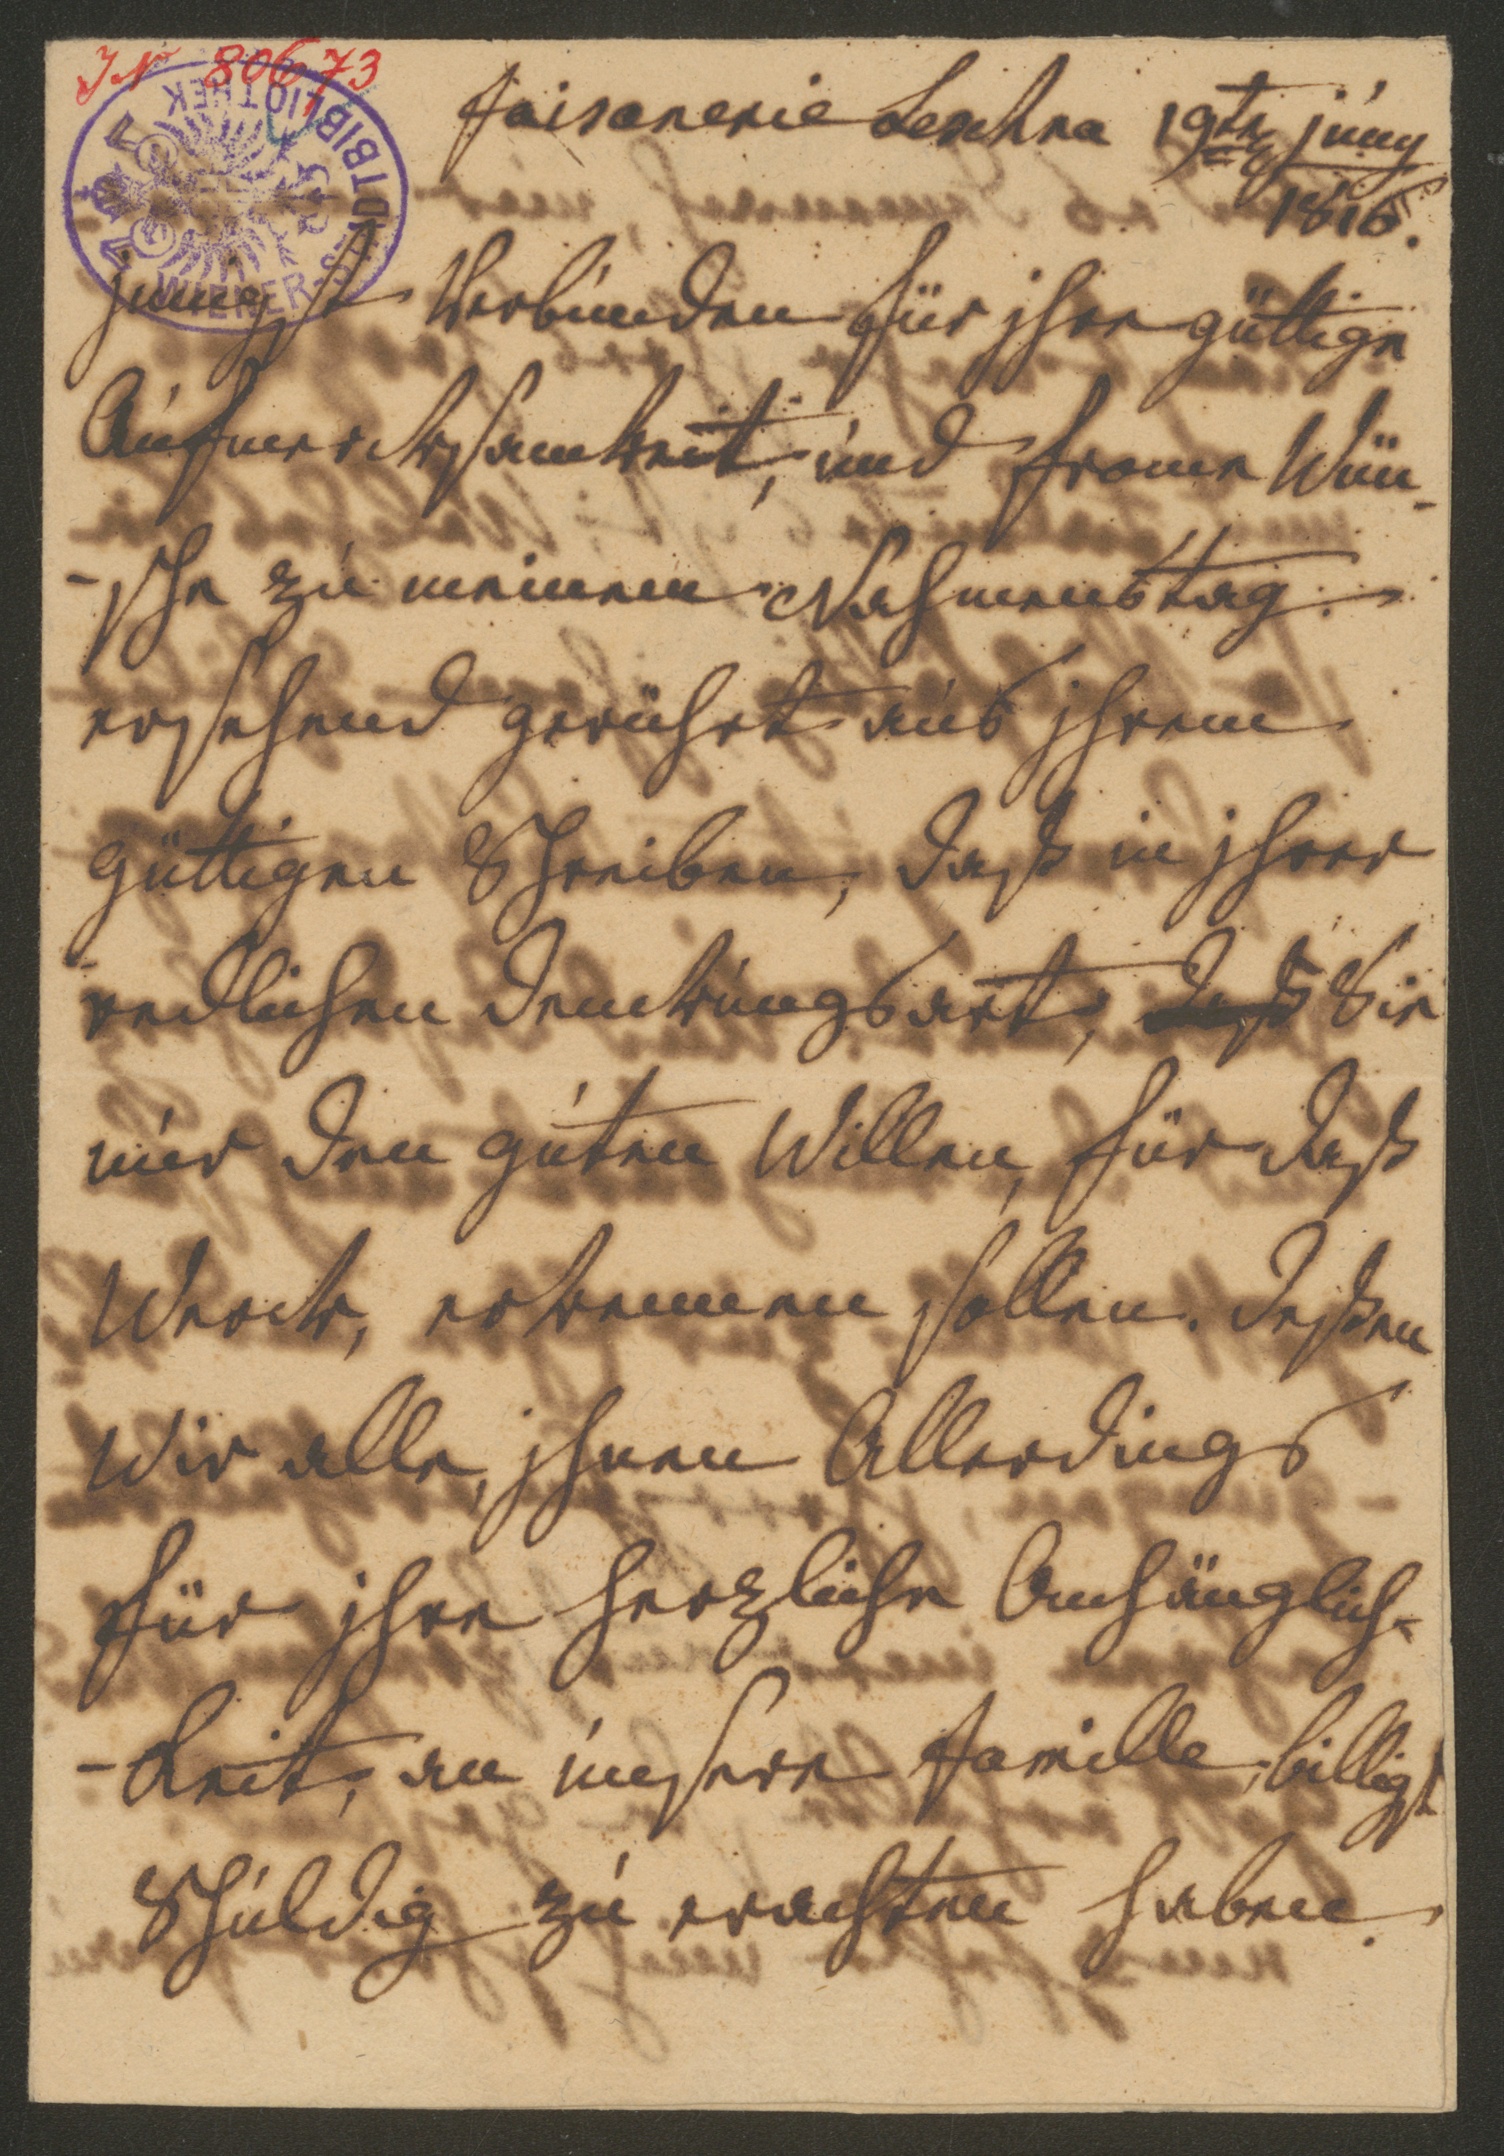 JN 80673
WIENER STADTBIBLIOTHEK
Faisanerie Leschna 19ten juny
1816.
jnnigst Verbunden für jhre güttige
Aufmercksamkeit, und frome Wün-
-sche zu meinem Nahmenstag.
ersehend gerührt aus jhrem
güttigen Schreiben, daß in jhrer
redlichen denkungsart, daß Sie
nur den guten Willen, für daß
Werck, erkennen sollen. deßen
Wir alle, jhnen Allerdings
für jhre herzliche Anhänglich-
-keit, an unsere Familie, billigst
Schuldig zu erachten haben.